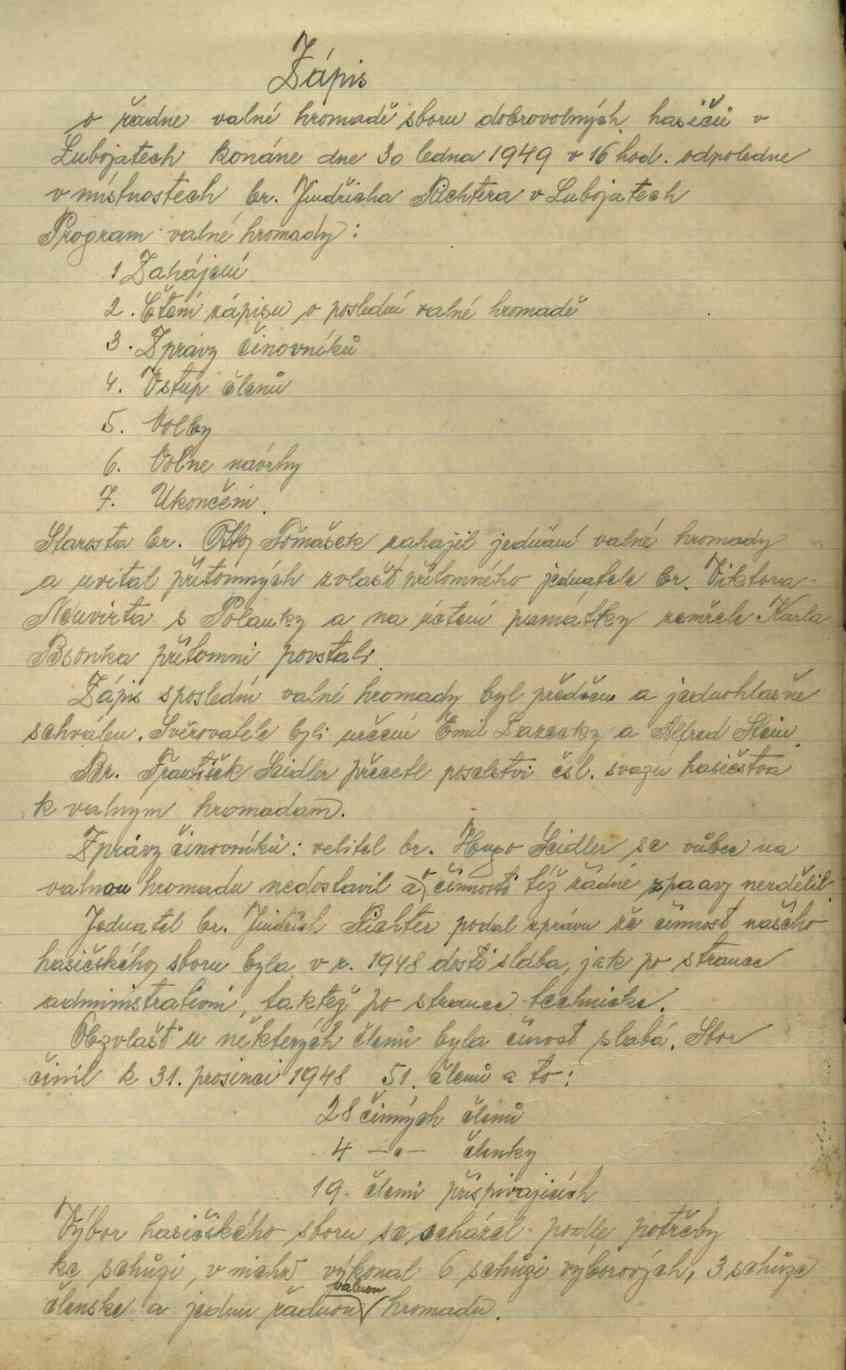 Zápis
o řadne valné hromadě sboru dobrovolných hasičů v
Lubojatech konáne dne 30 ledna 1949 v 16 hod. odpoledne
v místnostech br. Jindřicha Richtera v Lubojatech
Program valné hromady:
1 Zahájení
2. Čtení zápisu o poslední valné hromadě
3. Zprávy činovníků
4. Vstup členů
5. Volby
6. Volne návrhy
7. Ukončéní.
Starosta br. Tomášek zahajil jednání valné hromady
a uvital přítomných zvlašť přítomného jednatele br. Viktora
Neuvirta s Polanky a na úctení památky zemřele Karla
přítomni povstali.
Zápis sposlední valné hromady byl přečten a jednohlasně
schválen. Svěrovatele byli určení Emil a Alfred Stein.
Br. František Seidler přecetl poselstvi čsl. svazu hasičstva
k valným hromadám.
Zprávy činovníků: velitel br. Hugo Seidler se vůbec na
valnou hromadu nedostavil a o činnosti též řádné zpravy nezdělil.
Jednatel br. Jindřich Richter podal zprávu že činnost našeho
hasičského sboru byla v r. 1948 dosti slaba, jak po strance
administrativni, taktéž po strance technicke.
Obzvlašť u některých členů byla činost slabá. Sbor
činil k 31. prosinci 1948 51. členů a to:
28 činných členů
4 -"- členky
19. členů přispivajicich
Výbor hasičského sboru se scházel podle potřeby
ke schůzi, v nichž výkonal 6 schůzi výborových, 3 schůze
členske a jednu řádnou valnou hromadu.